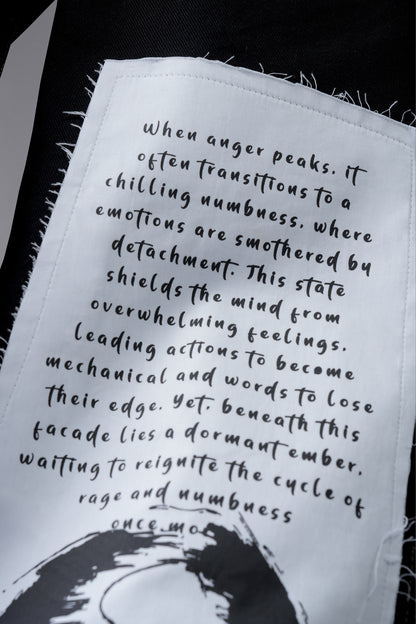 When anger peaks, it
often transitions to a
chilling numbness, where
emotions are smothered by
detachment. This state
shields the mind from
overwhelming feelings,
leading actions to become
mechanical and words to lose
their edge. Yet, beneath this
facade lies a dormant ember,
waiting to reignite the cycle of
rage and numbness
once